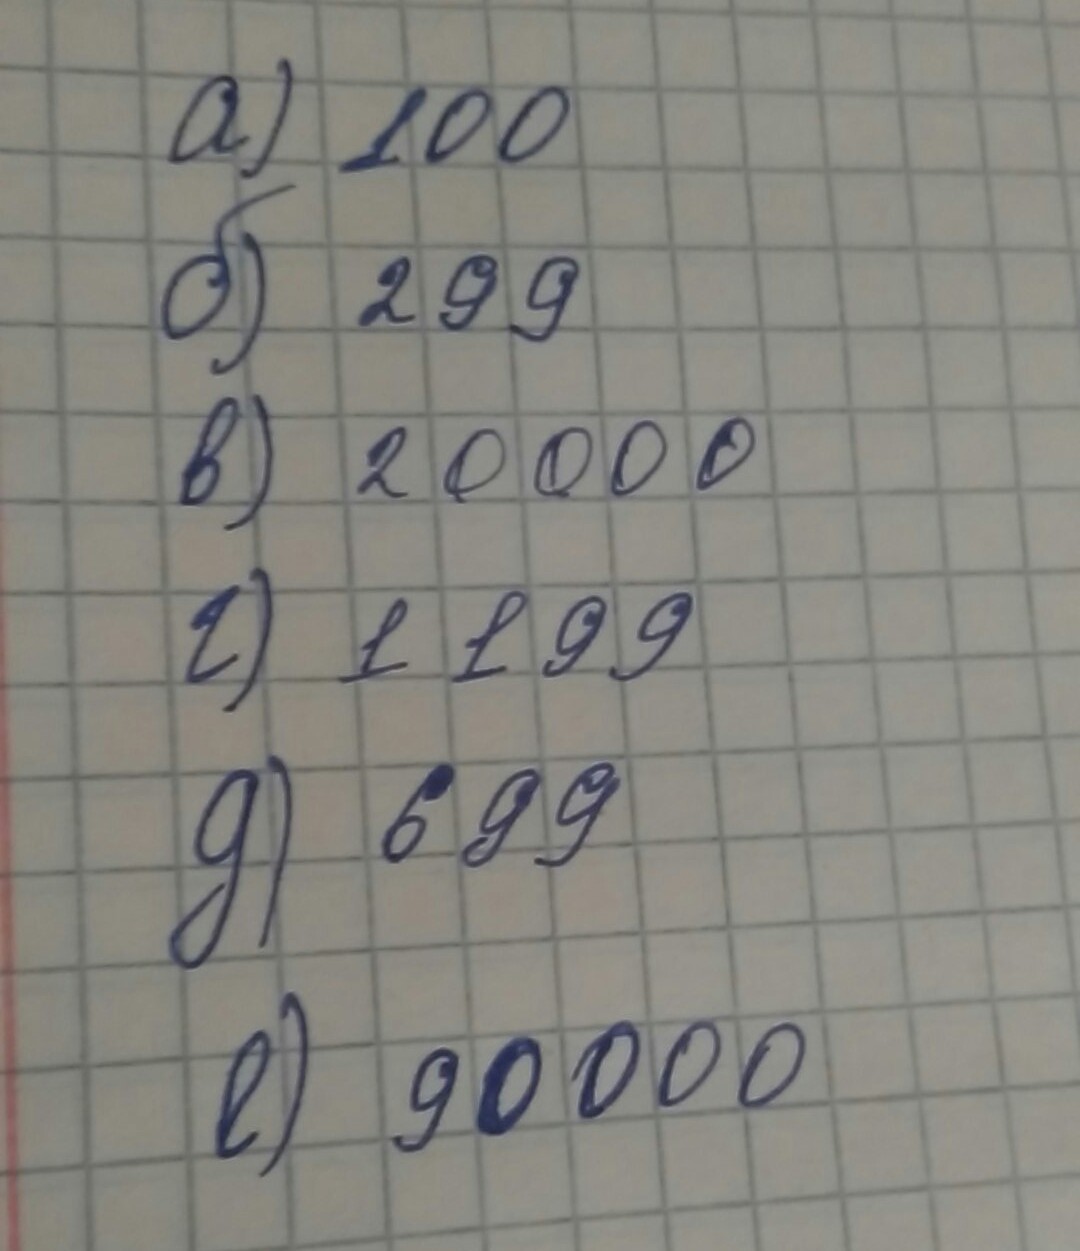 а) 100
б) 299
в) 20000
г) 1199
д) 699
е) 90000